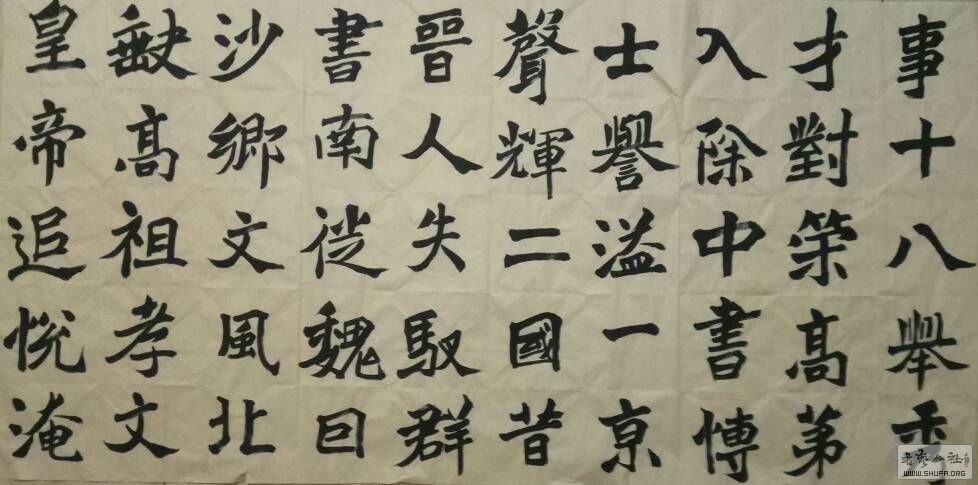 事十八舉秀
才對策高第
入除中書博
士譽溢一京
聲輝二國昔
晉人失馭群
書南徙魏囙
沙鄉文風北
缺高祖孝文
皇帝追悅淹
书艺公社
WWW.SHUFA.ORG